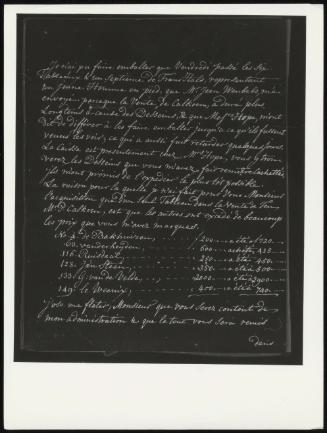 Je n'ai pu faire emballer que Vendredi passé les six
Tableaux & un septieme de Frans Hals, representant
un jeune Homme en pied, que Mr. Jean Wubbels m'a
envoyé: parceque la Vente de Calkoen, a duré plus
Longtems à cause des Desseins, & que Messrs. Hope, m'ont
dit de differer à les faire emballer, jusqu'a ce qu'ils fussent
venus les voir; ce qui a aussi fait retarder quelques jours.
La Caisse est presentement chez Mrs. Hope, vous y trou-
verez les Desseins que vous m'avez fait remettre cachettés
Ils m'ont promis de l'expedier le plus tot possible.
La raison pour la quelle je n'ai fait pour vous Monsieur
l'acquisition que d'un seul Tableau dans la Vente de feu
Mr. Calkoen, est que les autres ont excedé de beaucoup
les prix que vous m'avez marqués.
No. 4. de Bakhuisen, 200. a eté à 720.
60. vander heyden, 600. acheté 425
116. Ruisdael 250. a eté à 450
128. Jan Steen, 350. a eté à 500
133. G. van de Velde, 2000. a eté à 2900
149. le Weenix, 400. a eté à 740.
j'ose me flater, Monsieur que vous serez content de
mon administration & que le tout vous sera remis
dans